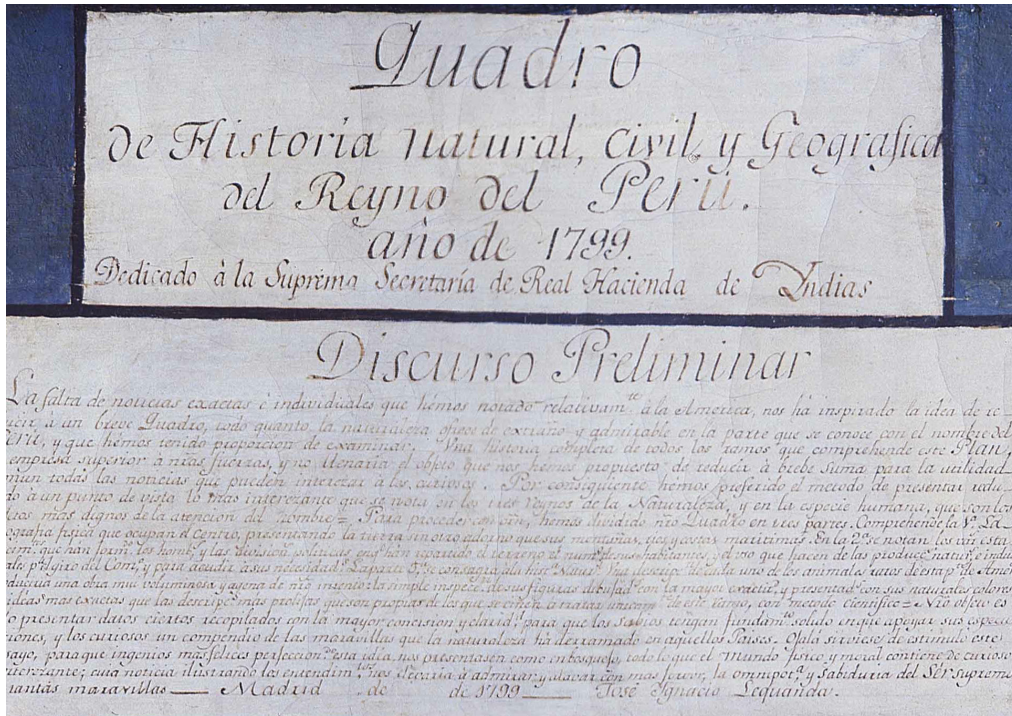 Quadro
de Historia natural, civil, y Geografica
del Reyno del Perú.
año de 1799.
Dedicado à la Suprema Secretaría de Real Hacienda de Yndias
Discurso Preliminar
La falta de noticias exactas è individuales que hémos notado relativam.te à la America, nos ha inspirado la idea de re
ucir à un breve Quadro, todo quanto la naturaleza ofrece de extraño y admirable en la parte que se conoce con el nombre del
Perú, y que hémos tenido proporcion de examinar. Vna historia completa de todos los ramos que comprehende este Plan,
empresa superior à nras fuerzas, y no llenaria el objeto que nos hemos propuesto de reducir à brebe suma para la utilidad
mun todas las noticias que pueden interezar à los curiosos. Por consiguiente hemos preferido el metodo de presentar redu
do à un punto de vista lo mas interezante que se nota en los tres reynos de la Naturaleza, y en la especie humana, que son los
tos mas dignos de la atencion del hombre= Para proceder con orn, hemos dividido nro Quadro en tres partes. Comprehende la 1.a La
ografia fisica que ocupan el centro, presentando la tierra sin otro adorno que sus montañas, rios, y costas maritimas. En la 2.a se notan los
que han form.do los homb.s y las division.s politicas en q.e han repartido el terreno
y para acudir à sus necesidad.s La parte 3.a
una obra mui voluminosa y agena de nro intento: la simple inspec.on de sus figuras dibujad.s con la mayor exactit.d y presentad.s con sus naturales colores
ideas mas exactas que las descripc.s mas prolijas que son propias de los que se ciñen à tratar unicam.te de este ramo, con metodo cientifico= Nro objeto es
o presentar datos ciertos recopilados con la mayor concision y clarid.d para que los sabios tengan fundam.to solido en que apoyar sus especu
iones, y los curiosos un compendio de las maravillas que la naturaleza ha derramado en aquellos Paises. Ojalá sirviese de estimulo este
sayo, para que ingenios mas felices perfeccion.do esta idea, nos presentasen como en bosquejo, todo lo que el mundo fisico y moral contiene de curioso
interezante; cuia noticia ilustrando los entendim.tos nos elevaria à admirar y alavar con mas fervor, la omnipot.a y sabiduria del Sér supremo
tantas maravillas — Madrid de de 1799 — José Ignacio Lequanda.